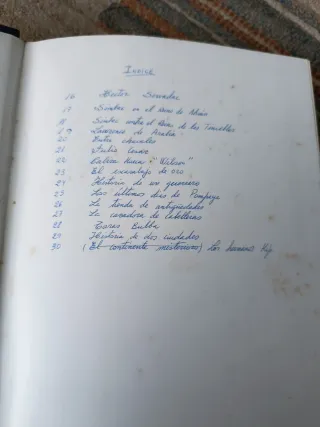 INDICE
16 Hector Servadac
17 Simbad en el
18 Simbad contra el de las Tinieblas
19 Lawrence de Arabia
20 Entre chacales
21 Julio Cesar
22 "Wilson"
23 El escarabajo de oro
24 Historia de un guerrero
25 Los últimos días de Pompeya
26 La tienda de antigüedades
27 La cazadora de cabelleras
28 Taras Bulba
29 Historia de dos ciudades
30 (El continente misterioso) Los hermanos Kip